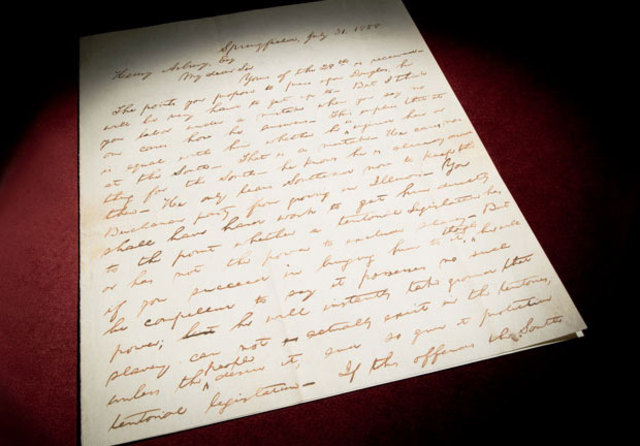 Springfield, July 31, 1858
Henry Asbury, Esq
My dear Sir Yours of the 28th is received.
The points you propose to press upon Douglas, he
will be very hard to get up to. But I think
you labor under a mistake when you say no
one cares how he answers. This implies that it
is equal with him whether he is injured here or
at the South. That is a mistake. He cares no-
thing for the South—he knows he is already dead
there. He only leans Southward now to keep the
Buchanan party from growing in Illinois. You
shall have hard work to get him directly
to the point whether a territorial Legislature has
or has not the power to exclude slavery. But
if you succeed in bringing him to it, though he will
be compelled to say it possesses no such
power; he will instantly take ground that
slavery can not actually exist in the territories,
unless the people desire it, and so give it protective
territorial legislation. If this offends the South